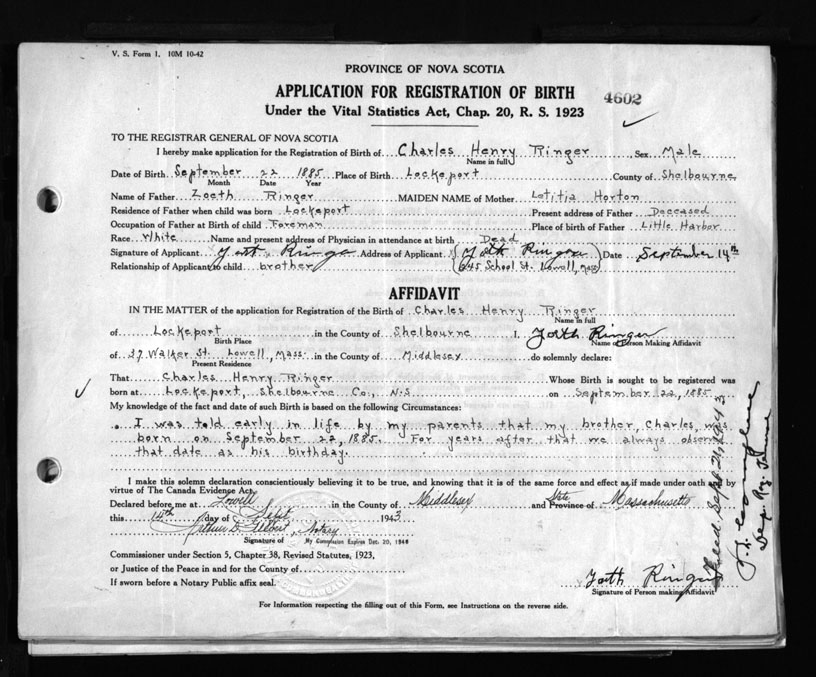 V. S. Form 1. 10M 10-42
PROVINCE OF NOVA SCOTIA
APPLICATION FOR REGISTRATION OF BIRTH
4602
Under the Vital Statistics Act, Chap. 20, R. S. 1923
TO THE REGISTRAR GENERAL OF NOVA SCOTIA
I hereby make application for the Registration of Birth of Charles Henry Ringer Sex Male
Name in full
Date of Birth September 22 1885 Place of Birth Lockeport County of Shelbourne
Month Date Year
Name of Father Zoeth Ringer MAIDEN NAME of Mother Letitia Horton
Residence of Father when child was born Lockeport Present address of Father Deceased
Occupation of Father at Birth of child Foreman Place of birth of Father Little Harbor
Race White Name and present address of Physician in attendance at birth Dead
Signature of Applicant Ringer Address of Applicant Ringer Date September 14th
645 School St. Lowell, Mass
Relationship of Applicant to child brother
AFFIDAVIT
IN THE MATTER of the application for Registration of the Birth of Charles Henry Ringer
Name in full
of Lockeport in the County of Shelbourne I, Ringer
Birth Place Name of Person Making Affidavit
of 37 Walker St. Lowell, Mass. in the County of Middlesex do solemnly declare:
Present Residence
That Charles Henry Ringer Whose Birth is sought to be registered was
born at Lockeport, Shelbourne Co., N.S. on September 22, 1885
My knowledge of the fact and date of such Birth is based on the following Circumstances:
I was told early in life by my parents that my brother, Charles, was
born on September 22, 1885. For years after that we always observe
that date as his birthday.
I make this solemn declaration conscientiously believing it to be true, and knowing that it is of the same force and effect as if made under oath and by
virtue of The Canada Evidence Act.
Declared before me at Lowell in the County of Middlesex State and Province of Massachusetts
this 14th day of Sept 1943
Arthur D. Gilbert, Notary
Signature of My Commission Expires Dec. 20, 1946
Commissioner under Section 5, Chapter 38, Revised Statutes, 1923,
or Justice of the Peace in and for the County of
If sworn before a Notary Public affix seal. Ringer
Signature of Person making Affidavit
For Information respecting the filling out of this Form, see Instructions on the reverse side.
Sept 21, 1943
Dep. Reg.